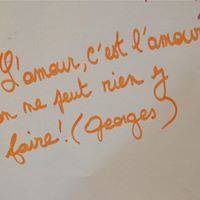 L'amour, c'est l'amour
on ne peut rien y
faire! (Georges)